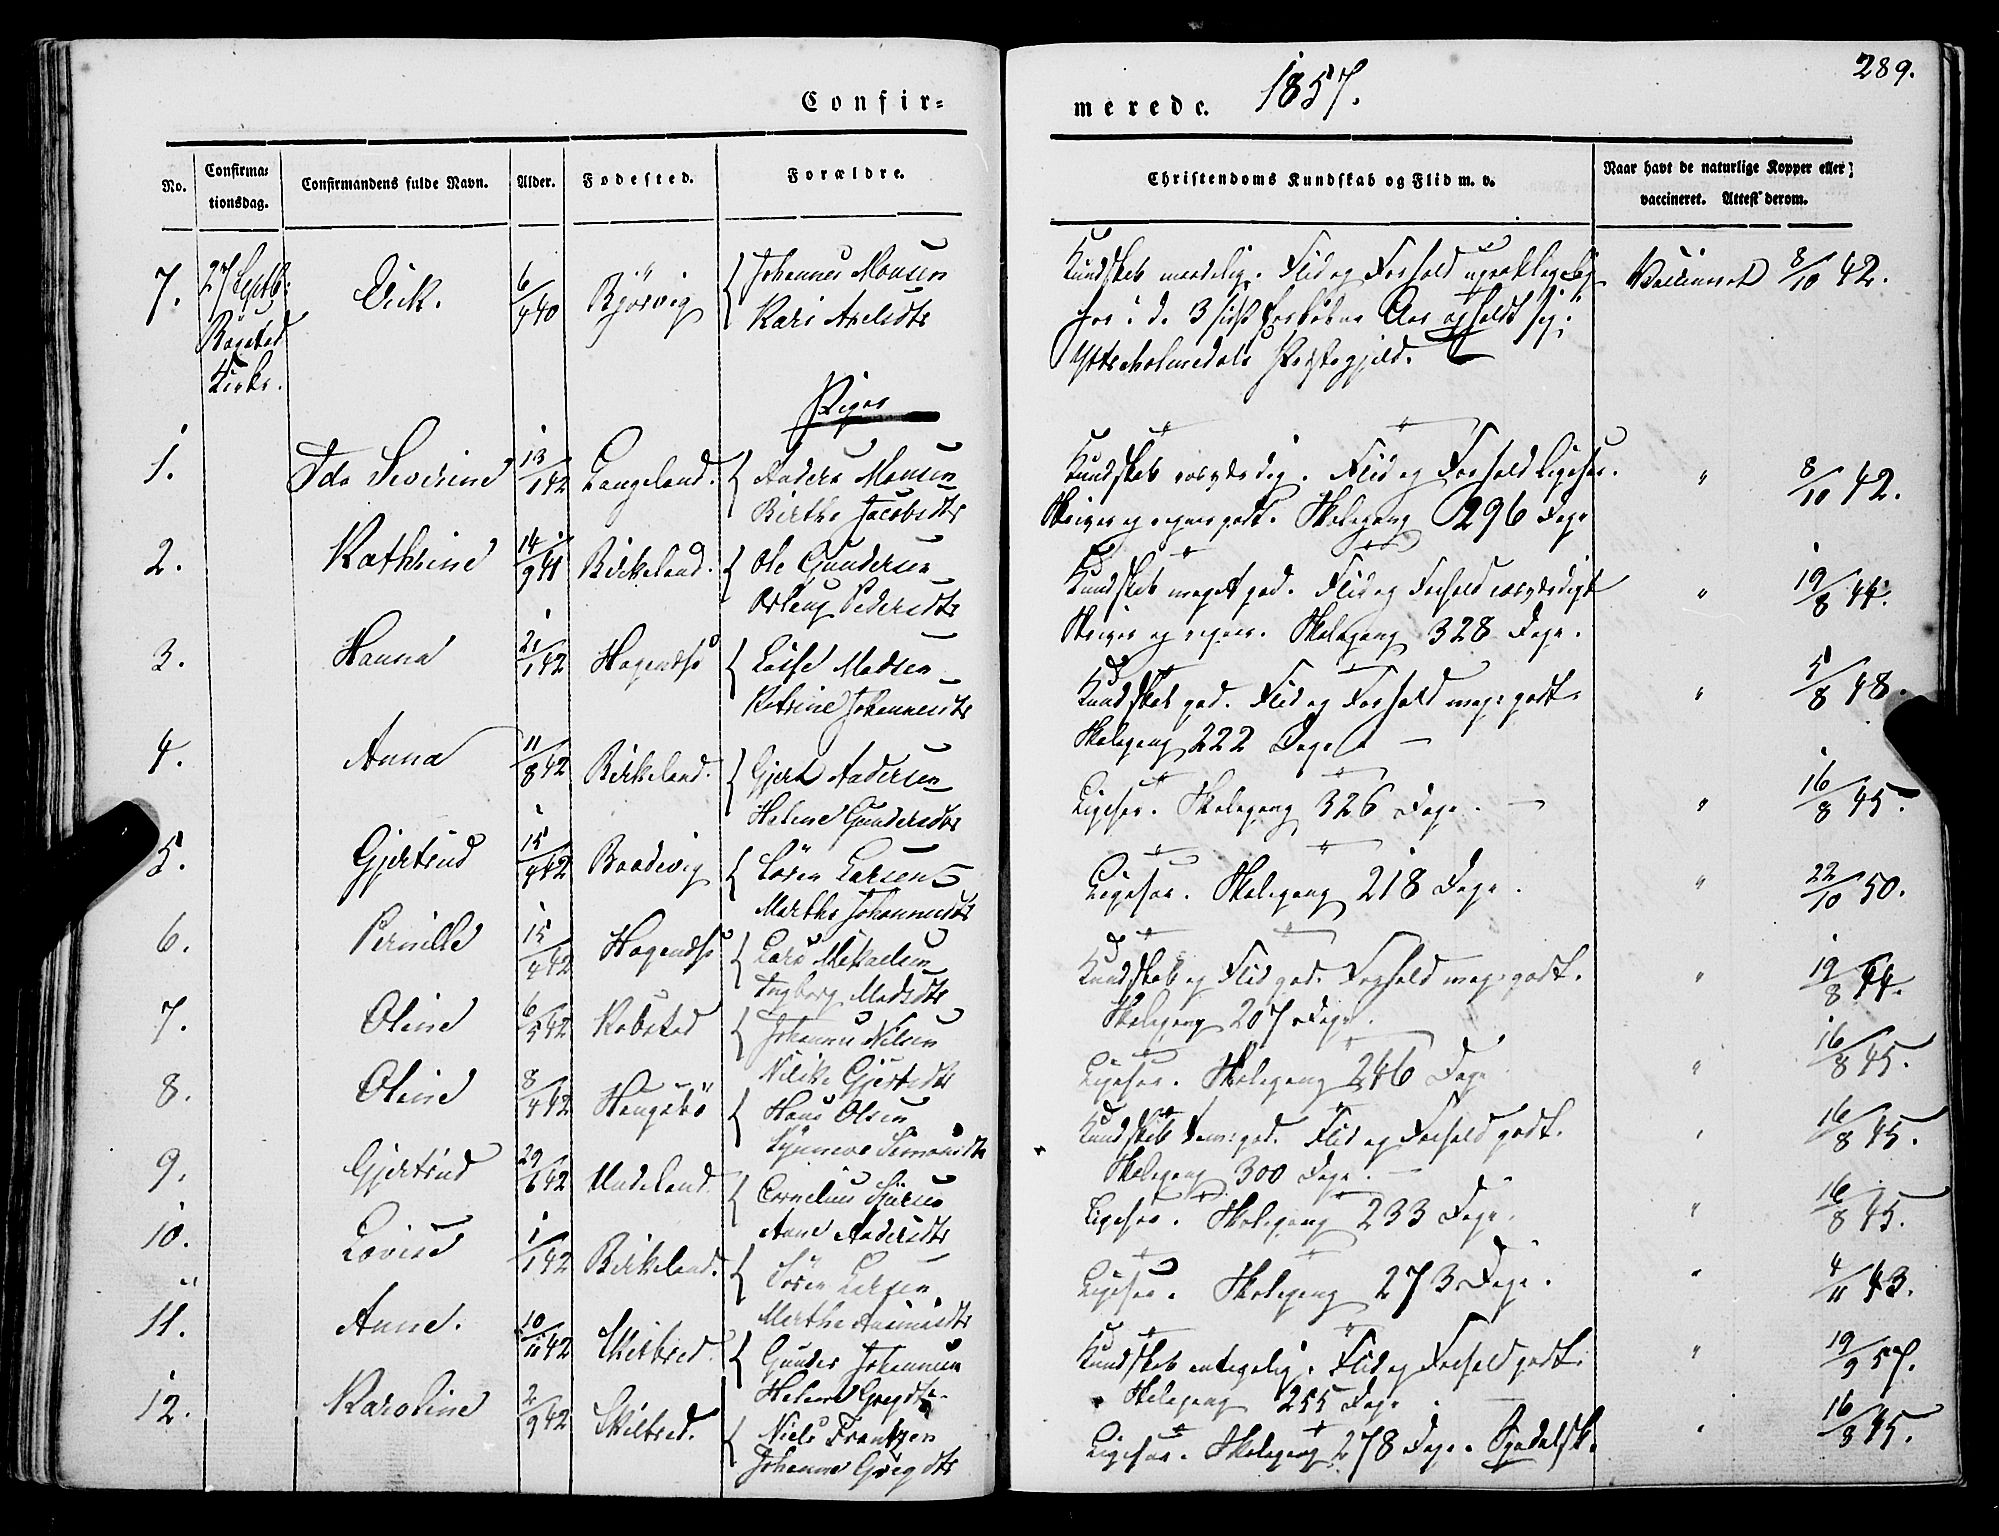 Confir=
merede. 1857.
289.
No.
Confirma=
tionsdag.
Confirmandens fulde Navn.
Alder.
Fødested.
Forældre.
Christendoms Kundskab og Flid m. v.
Naar havt de naturlige Kopper eller
vaccineret. Attest derom.
7. 27 Septb. Erik. 6/4 40 Bjørvig Johannes Monsen
Kari Axelsdtr
Kirke.
Kundskab maadelig. Flid og Forhold
har i de 3 sidst Aar opholdt sig i
Præstegjeld.
Vaccineret 8/10 42.
Piger
1. Ida Severine 13/1 42 Langeland. Anders Monsen
Birthe Jacobsdtr
Kundskab roesværdig. Flid og Forhold Ligesaa.
Skriver og regner godt. Skolegang 296 Dage
" 8/10 42.
2. Kathrine 14/9 41 Birkeland. Ole Gundersen
Pedersdtr
Kundskab meget god. Flid og Forhold roesværdigt
Skriver og regner. Skolegang 328 Dage.
" 19/8 44.
3. Hanna 21/1 42 Madsen
Katrine Johannesdtr
Kundskab god. Flid og Forhold meg: godt.
Skolegang 222 Dage. —
" 5/8 48.
4. Anna 11/8 42 Birkeland. Gjert Andersen
Helene Gundersdtr
Ligesaa. Skolegang 326 Dage. —
" 16/8 45.
5. Gjertrud 15/4 42 Søren Larsen
Marthe Johannesdtr
Ligesaa. Skolegang 218 Dage.
" 22/10 50.
6. Pernille 15/4 42 Lars Mikaelsen
Ingborg Madsdtr
Kundskab og Flid god. Forhold meg: godt.
Skolegang 207 Dage.
" 19/8 44.
7. Oline 6/5 42 Johannes Nilsen
Gjertsdtr
Ligesaa. Skolegang 246 Dage
" 16/8 45.
8. Oline 8/4 42 Haugsbø Hans Olsen
Synneve Simonsdtr
Kundskab tem: god. Flid og Forhold godt.
Skolegang 300 Dage. —
" 16/8 45.
9. Gjertrud 29/6 42 Undeland. Cornelius
Anne Andersdtr
Ligesaa. Skolegang 233 Dage.
" 16/8 45.
10. Lovise 1/1 42 Birkeland. Søren Larsen
Marthe
Ligesaa. Skolegang 273 Dage.
" 4/11 43.
11. Anne. 10/11 42 Skilbred. Gunder Johannesen
Helene Gregdtr
Kundskab antagelig. Flid og Forhold godt.
Skolegang 255 Dage.
" 19/9 57.
12. Karoline 2/9 42 Skilbred. Niels Frantzen
Johanne Gregdtr
Ligesaa. Skolegang 278 Dage. Spedalsk.
" 16/8 45.